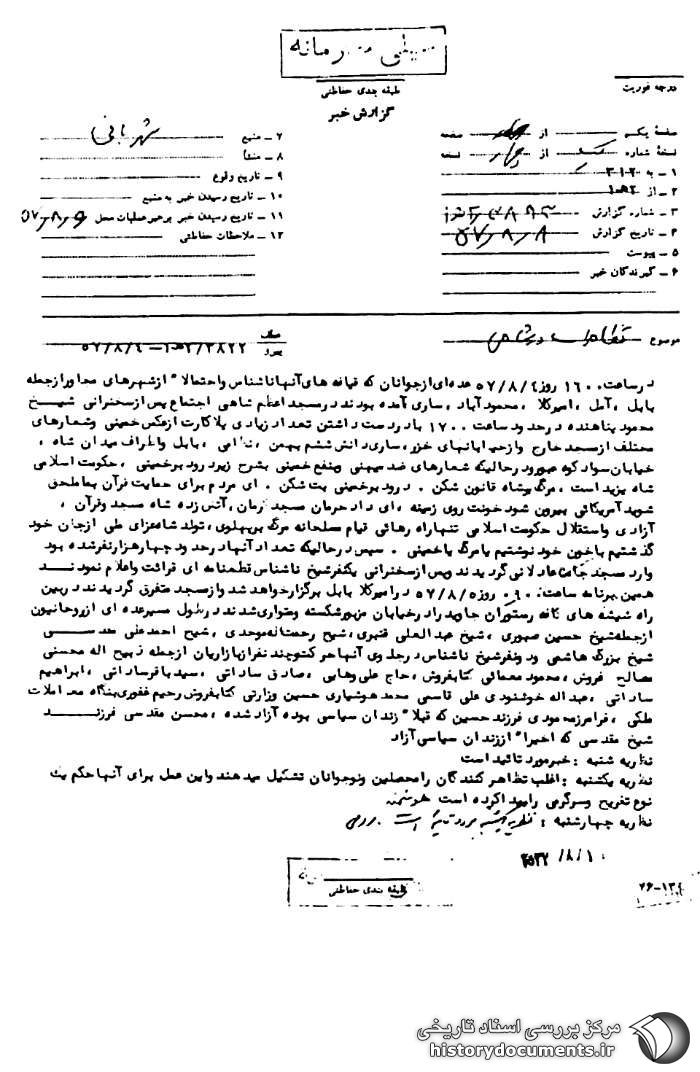 خیلی محرمانه
طبقه بندی حفاظتی
گزارش خبر
درجه فوریت
صفحهٔ یکم از صفحه
نسخهٔ شماره یک از چهار نسخه
۱ ـ به ۳۱۲
۲ ـ از
۳ ـ شماره گزارش
۴ ـ تاریخ گزارش ۵۷/۸/۸
۵ ـ پیوست
۶ ـ گیرندگان خبر
۷ ـ منبع شهربانی
۸ ـ منشأ
۹ ـ تاریخ وقوع
۱۰ ـ تاریخ رسیدن خبر به منبع
۱۱ ـ تاریخ رسیدن خبر برهبر عملیات محل ۵۷/۸/۶
۱۲ ـ ملاحظات حفاظتی
موضوع تظاهرات در شاهی
۵۷/۸/۴
در ساعت ۱۶۰۰ روز ۵۷/۸/۴ عده‌ای ازجوانان که قیافه های آنها ناشناس واحتمالا" از شهرهای مجاور ازجمله
بابل ، آمل ، امیرکلا ، محمودآباد ، ساری آمده بودند در مسجد اعظم شاهی اجتماع پس از سخنرانی شیخ
محمود پناهنده در حدود ساعت ۱۷۰۰ با در دست داشتن تعداد زیادی پلاکارت ازعکس خمینی وشعارهای
مختلف ازمسجد خارج وازخیابانهای خزر ، ساری دانش ششم بهمن ، بابل واطراف میدان شاه ،
خیابان سوادکوه عبور ودرحالیکه شعارهای ضد میهنی وبنفع خمینی بشرح زیر درود برخمینی ، حکومت اسلامی
شاه یزید است ، مرگ برشاه قانون شکن . درود برخمینی بت شکن . ای مردم برای حمایت قرآن بماملحق
شوید آمریکائی بیرون شو خونت روی زمینه ، ای داد حرمان مسجد کرمان ، آتش زده شاه مسجد وقرآن ،
آزادی واستقلال حکومت اسلامی تنها راه رهائی قیام مسلحانه مرگ بر پهلوی ، تولد شاه عزای ملی ازجان خود
گذشتیم باخون خود نوشتیم یا مرگ یاخمینی . سپس درحالیکه تعداد آنها درحدود چهارهزارنفر شده بود
وارد مسجد جامعه گردیدند وپس از سخنرانی یکنفر شیخ ناشناس قطعنامه ای قرائت واعلام نمودند
همین برنامه ساعت ۰۹۰۰ روز ۵۷/۸/۵ در امیرکلا بابل برگزار خواهد شد وازمسجد متفرق گردیدند در بین
راه شیشه های کافه رستوران جاوید را در خیابان مزبور شکسته ومتواری شدند در طول مسیر عده ای از روحانیون
ازجمله شیخ حسین صبوری ، شیخ عبدالعلی قنبری ، شیخ رحمت اله موحدی ، شیخ احمدعلی مقدسی
شیخ بزرگ هاشمی ودونفر شیخ ناشناس درجلوی آنها حرکت وچند نفر ازبازاریان ازجمله ذبیح اله محسنی
مصالح فروش ، محمود معمائی کتابفروش ، حاج علی وهابی ، صادق ساداتی ، سیدباقر ساداتی ، ابراهیم
ساداتی ، عبداله خوشنودی علی قاسمی محمد هوشیاری حسین وزارتی کتابفروش رحیم غفوری بنگاه معاملات
ملکی ، فرامرز محمودی فرزند حسین که قبلا" زندان سیاسی بوده آزاد شده ، محسن مقدسی فرزند
شیخ مقدسی که اخیرا" از زندان سیاسی آزاد
نظریه شنبه : خبر مورد تائید است
نظریه یکشنبه : اغلب تظاهر کنندگان را محصلین ونوجوانان تشکیل میدهند واین عمل برای آنها حکم یک
نوع تفریح وسرگرمی را پیدا کرده است هوشمند
نظریه چهارشنبه : نظریه یکشنبه مورد تأیید است .
۲۵۳۷/۸/۱۰
طبقه بندی حفاظتی
مرکز بررسی اسناد تاریخی
historydocuments.ir